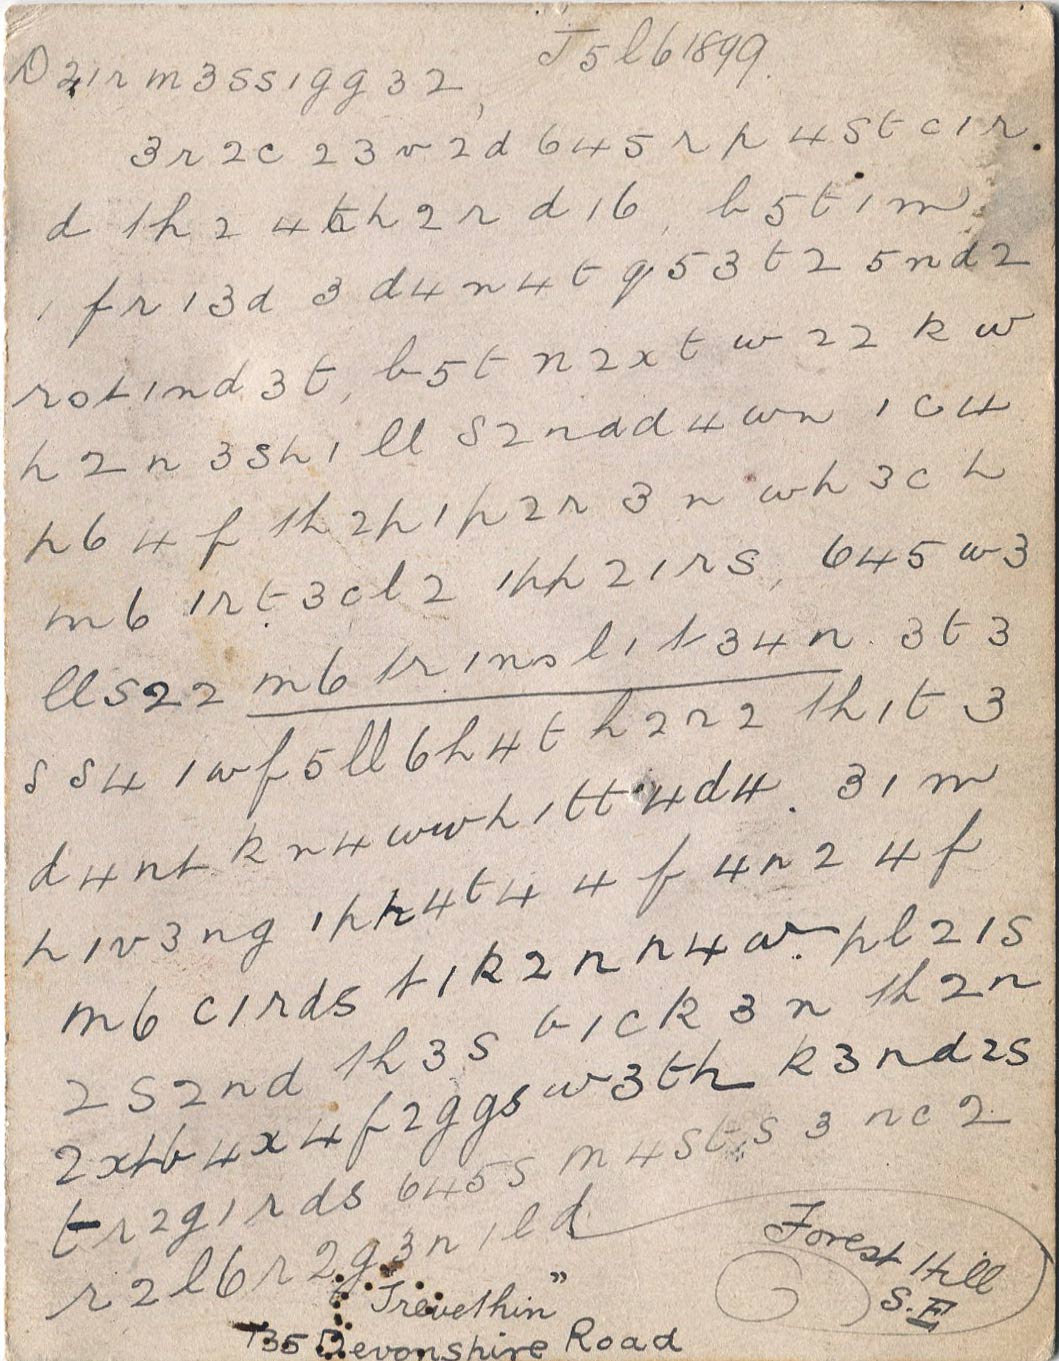 J5l6 1899.
D21r m3ss1gg32,
3r2c23v2d 645r p4stc1r.
d th2 4th2r d16, b5t 1m
1fr13d 3 d4n4t q53t2 5nd2
rst1nd 3t, b5t n2xt w22k w
h2n 3sh1ll s2nd d4wn 1 c4
p6 4f th2 p1p2r 3n wh3ch
m6 1rt3cl2 1pp21rs, 645 w3
ll s22 m6 tr1nsl1t34n. 3t 3
s s4 1wf5ll6 h4t h2r2 th1t 3
d4nt kn4w wh1t t4 d4. 3 1m
h1v3ng 1 ph4t4 4f 4n2 4f
m6 c1rds t1k2n n4w. pl21s
2 s2nd th3s b1ck 3n th2 n
2xt b4x 4f 2ggs w3th k3nd2s
t r2g1rds 645s m4st s3nc2
r2l6 r2g3n1ld
Forest Hill
S.E
"Trevethin"
135 Devonshire Road